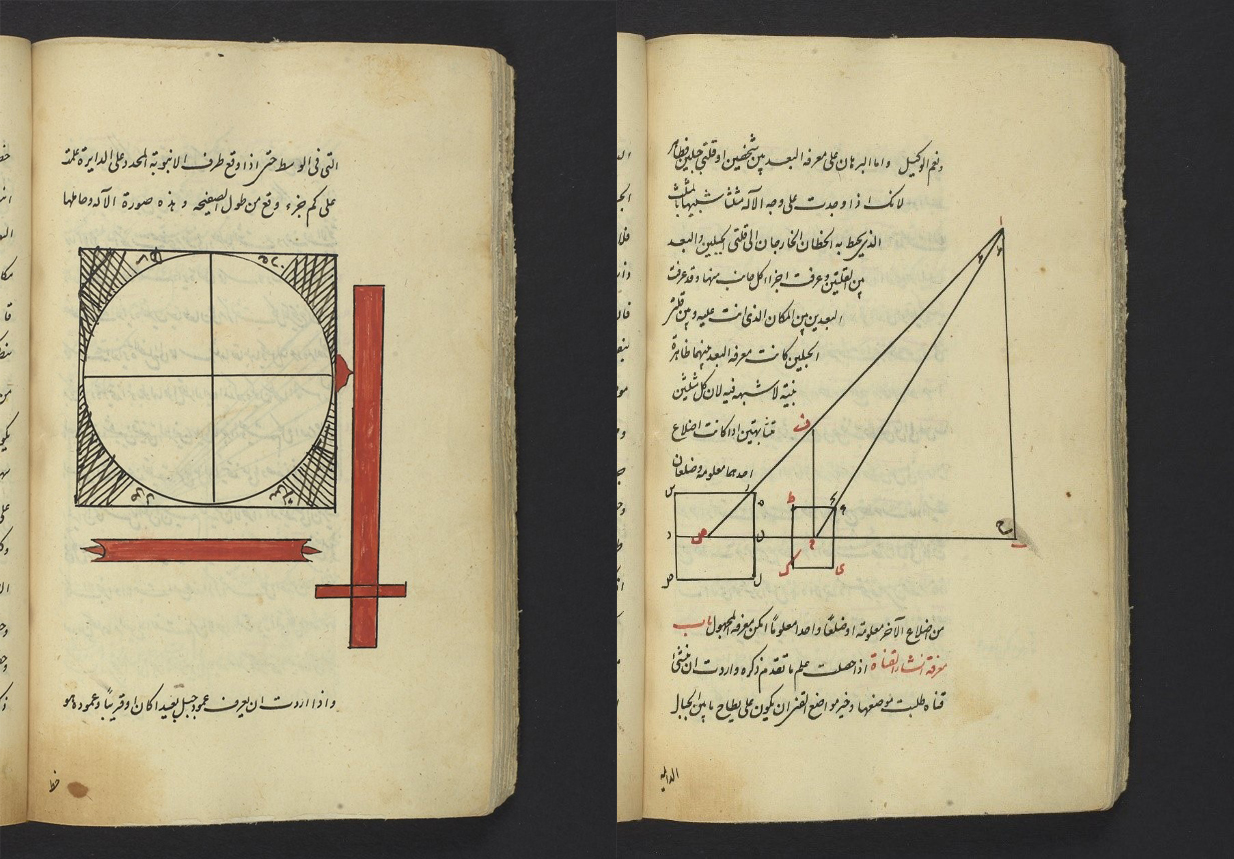 التى فى الوسط حتى اذا وقع طرف الانبوبة المحدد على الدايرة علمت
على كم جزء وقع من طول الصفيحه وهذه صورة الآله وحاملها
واذا اردت ان تعرف عمود جبل بعيدا كان او قريبًا وعموده هو
خط
ونعم الوكيل واما البرهان على معرفه البعد بين شخصين او قلتى جبلين فظاهر
لانك اذا وجدت على وجه الآله مثلثا شبيها بالمثلث
الذى يحيط به الخطان الخارجان الى قلتى الجبلين والبعد
بين القلتين وعرفت اجزاء كل جانب منها وقد عرفت
البعدين بين المكان الذى انت عليه وبين قلتى
الجبلين كانت معرفه البعد بينهما ظاهرة
بينة لا شبهه فيه لان كل مثلثين
متشابهتين اذا كانت اضلاع
احدهما معلومه وضلعان
ا
ف
ط
س
ص
د
ك
ى
ب
ح
ل
من اضلاع الآخر معلومة او ضلعًا واحدا معلومًا امكن معرفه المجهول باب
معرفة انشاء القناة اذا حصلت علم ما تقدم ذكره واردت ان تنشئ
قناه طلبت موضعها وخير مواضع القنى ان يكون على بطاح ما بين الجبال